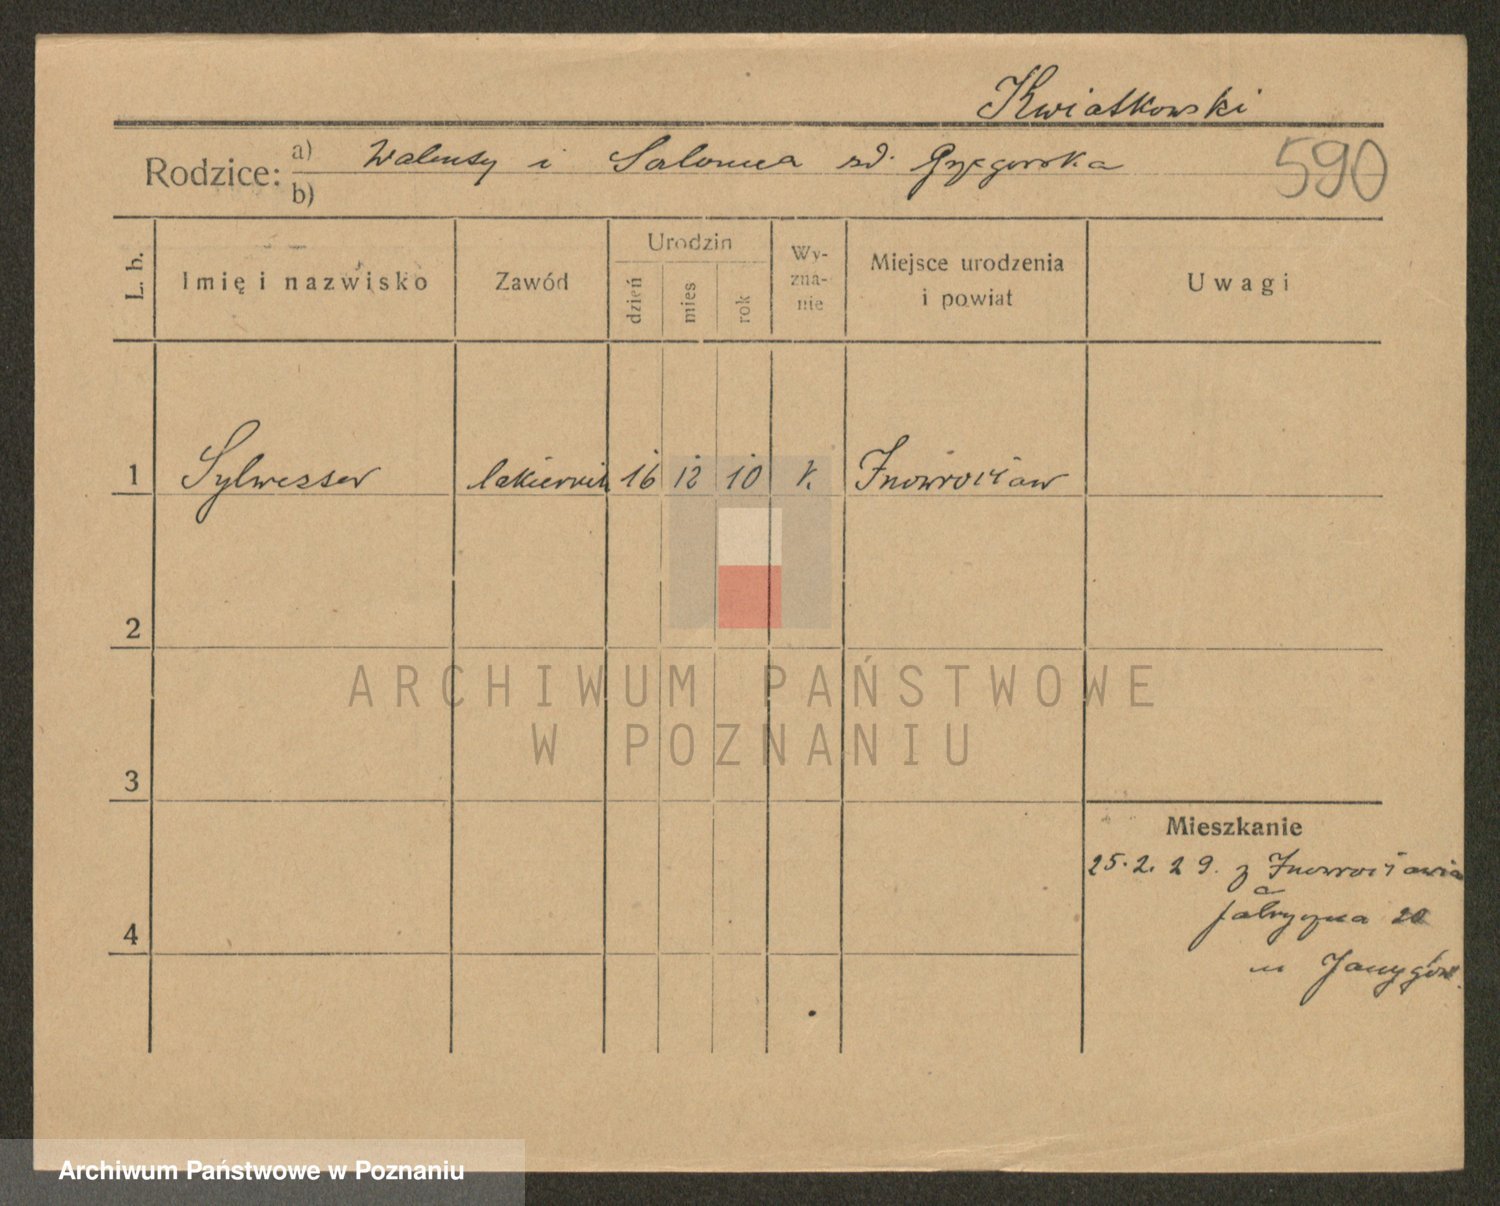 Kwiatkowski
Rodzice: a) Walenty i Salomea zd. Grzegorska
b)
590
L. b.
Imię i nazwisko
Zawód
Urodzin
dzień
mies
rok
Wy-
zna-
nie
Miejsce urodzenia
i powiat
Uwagi
1 Sylwester lakiernik 16 12 10 k. Inowrocław
2
ARCHIWUM PAŃSTWOWE
W POZNANIU
3
Mieszkanie
25.2.29. z Inowrocławia
Fabryczna 20
u
4
Archiwum Państwowe w Poznaniu